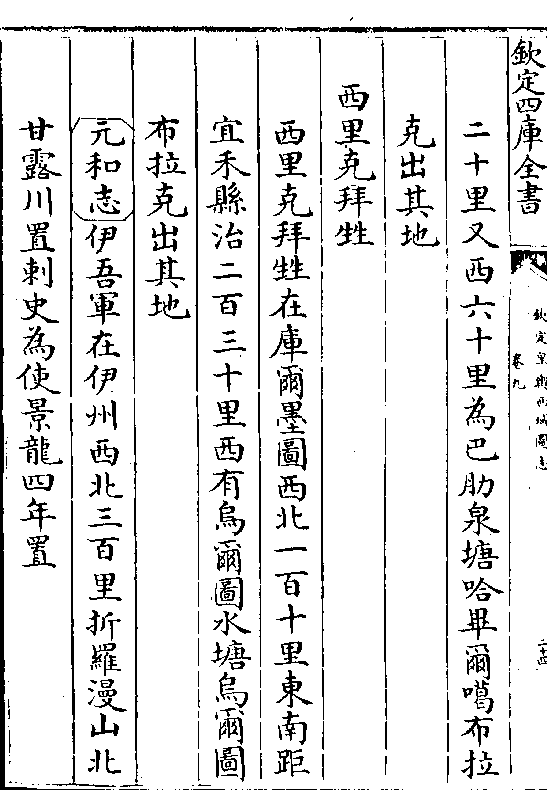 欽定四庫全書
欽定皇輿西域圖志
卷九
二十四
二十里又西六十里為巴肋泉塘哈畢爾噶布拉
克出其地
西里克拜甡
西里克拜甡在庫爾墨圖西北一百十里東南距
宜禾縣治二百三十里西有烏爾圖水塘烏爾圖
布拉克出其地
元和志伊吾軍在伊州西北三百里折羅漫山北
甘露川置刺史為使景龍四年置